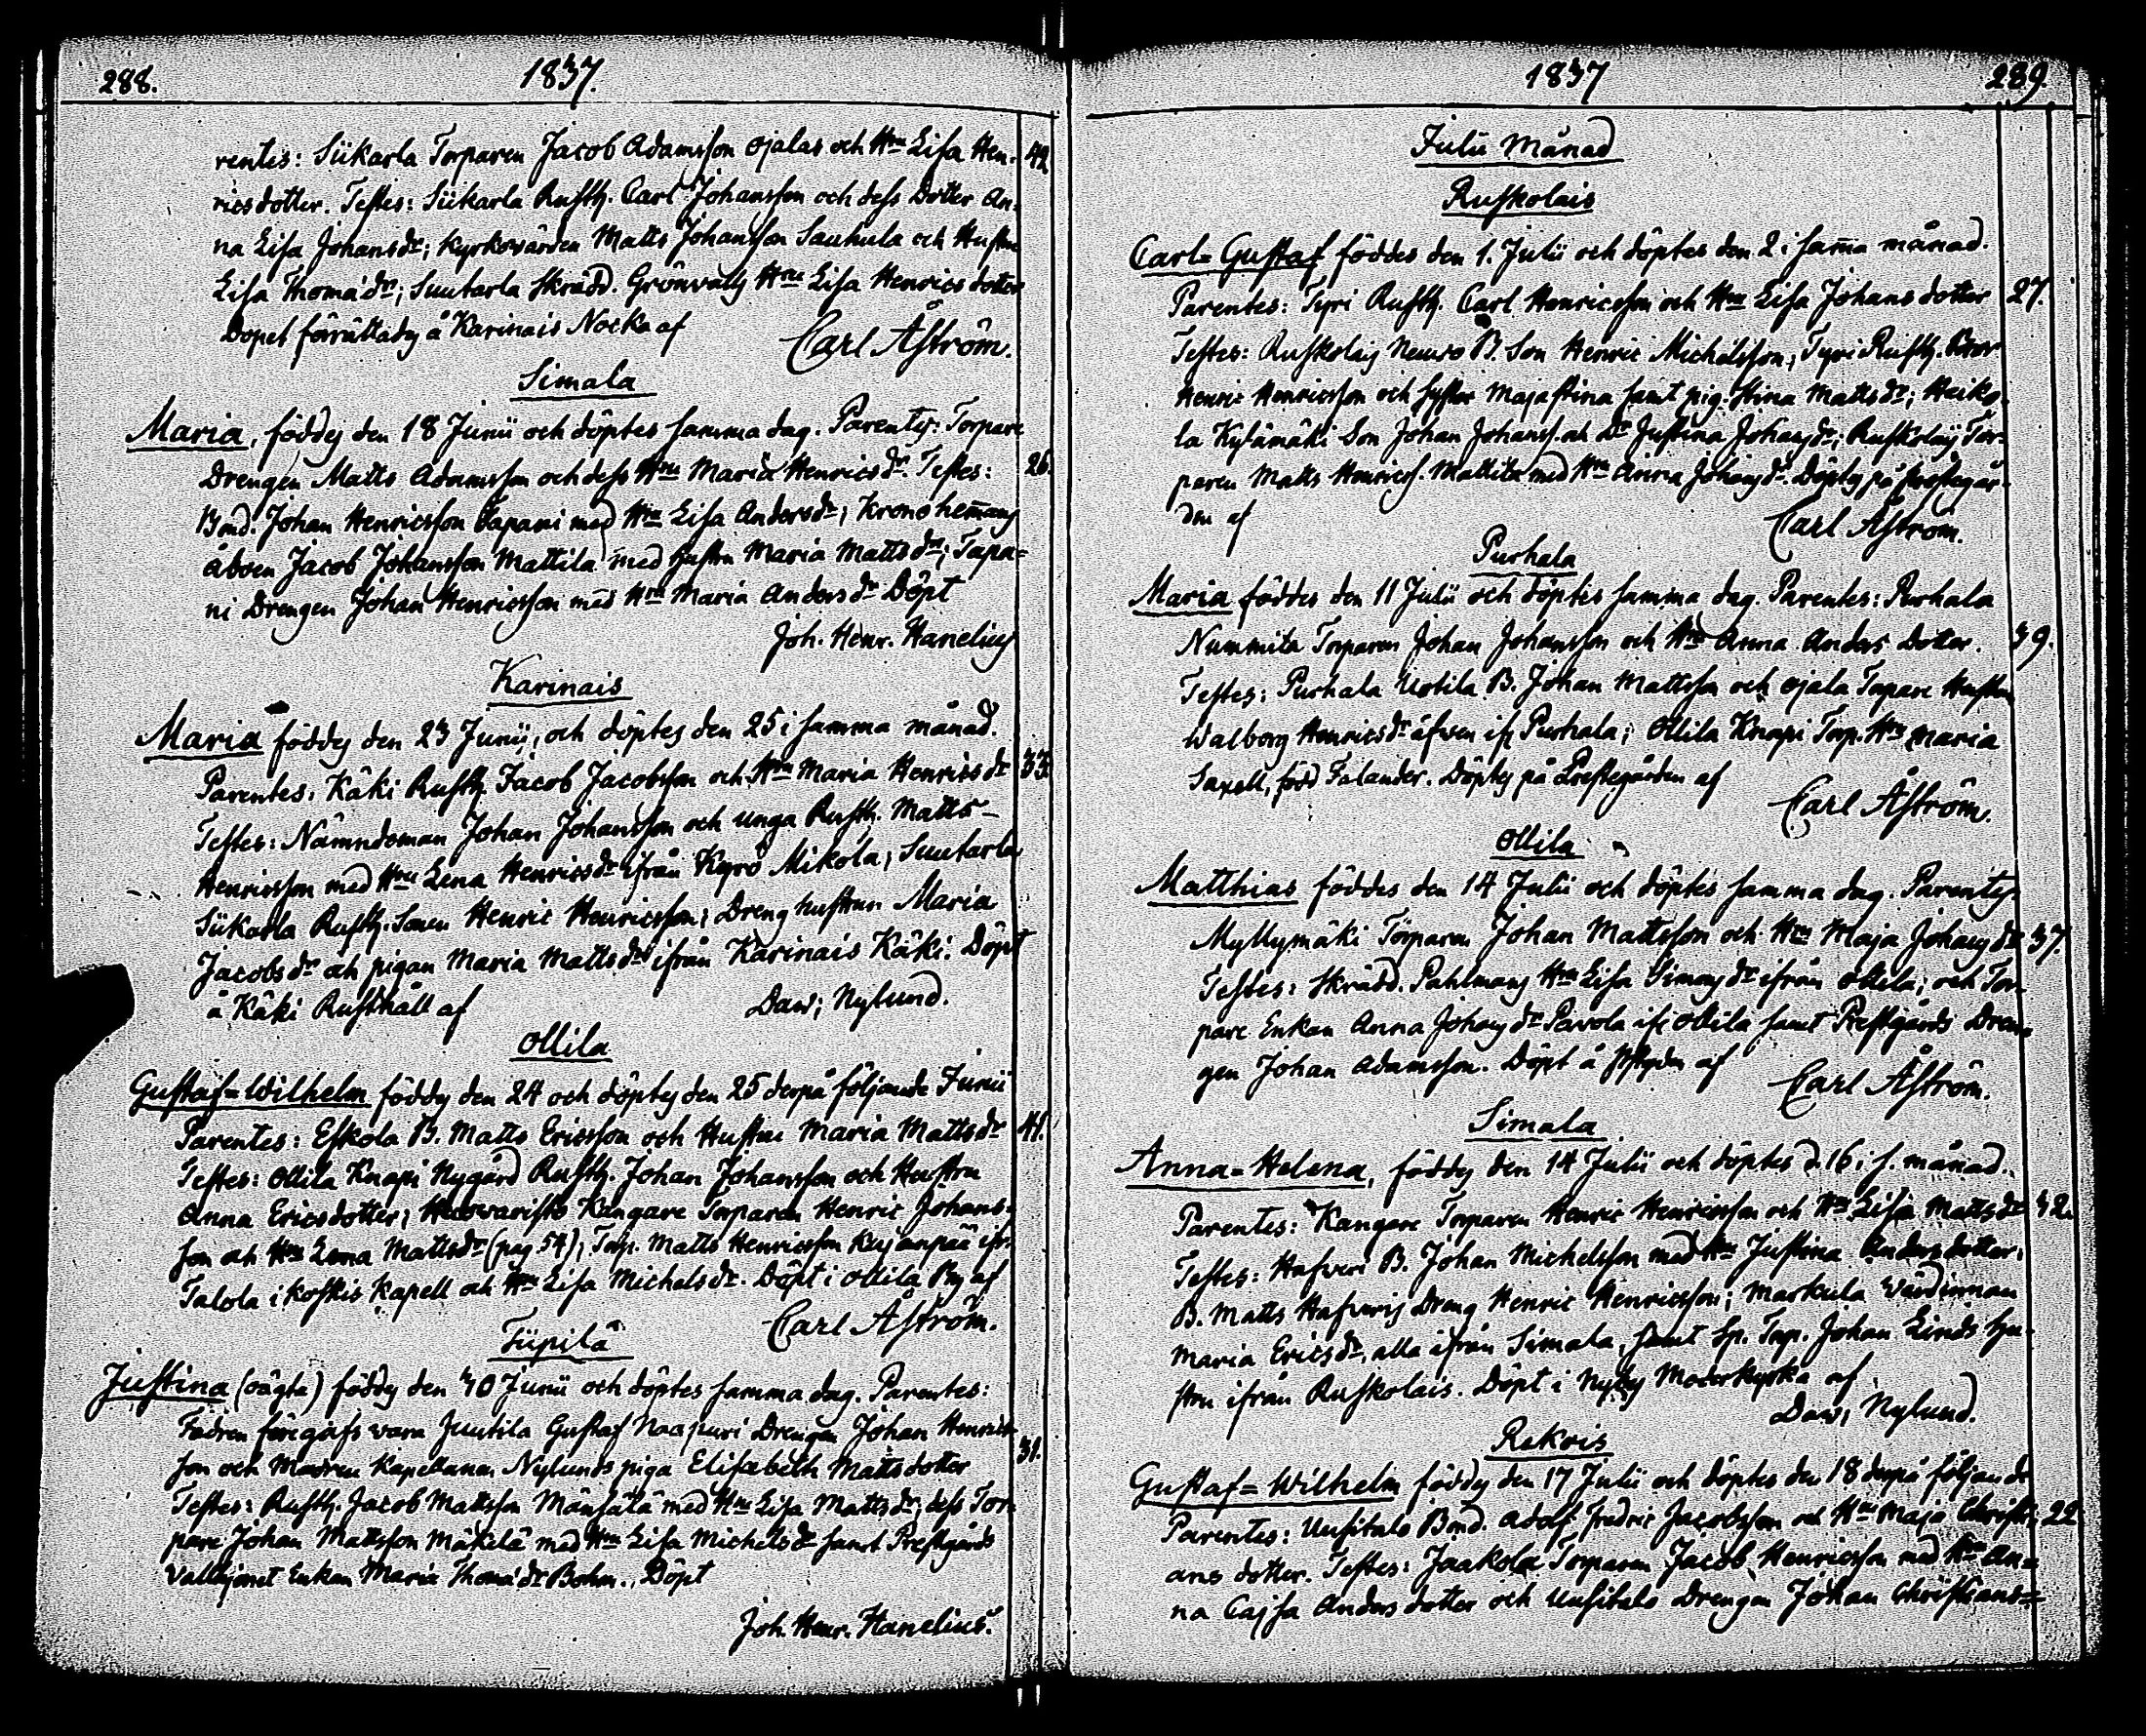 288.
1837.
rentes: Siikarla Torparen Jacob Adamsson Ojalas och Hru Lisa Hen-
ricsdotter. Testes: Siikarla Rusth. Carl Johansson och dess Dotter An-
na Lisa Johansdr; Kyrkovärden Matts Johansson Sauhula och Hustru
Lisa Thomædr; Suutarla Skrädd. Grönvalls Hru Lisa Henricsdotter
Dopet förrättades å Karinais Nocka af
Carl Åström.
42
Simala
Maria,föddes den 18 Junii och döptes samma dag. Parentes: Torpare
Drengen Matts Adamsson och dess Hru Maria Henricsdr. Testes:
Bond. Johan Henricsson Tapani med Hru Lisa Andersdr; Kronohemans
åboen Jacob Johansson Mattila med hustru Maria Mattsdr; Tapa=
ni Drengen Johan Henricsson med Hru Maria Andersdr Döpt
Joh. Henr. Hanelius
26.
Karinais
Maria föddes den 23 Junii, och döptes den 25 i samma månad.
Parentes. Käki Rusth. Jacob Jacobsson och Hru Maria Henricsdr
Testes: Nämndeman Johan Johansson och unga Rusth. Matts
Henricsson med Hru Lena Henricsdr ifrån Kyrö Mikola; Suutarla
Siikarla Rusth. Sonen Henric Henricsson; Dreng hustrun Maria
Jacobsdr och pigan Maria Mattsdr ifrån Karinais Käki. Döpt
å Käki Rusthåll af
Dav; Nylund.
33
Ollila
Gustaf=Wilhelm föddes den 24 och döptes den 25 derpå följande Junii
Parentes: Eskola B. Matts Ericsson och Hustru Maria Mattsdr
Testes: Ollila Knapi Nygård Rusth. Johan Johansson och Hustru
Anna Ericsdotter; Kangare Torparen Henric Johans-
son och Hru Lena Mattsdr (pag 54); Torp. Matts Henricsson Kujanpää ifr.
Talola i Koskis Kapell och Hru Lisa Michelsdr. Döpt i Ollila By af
Carl Åström.
41.
Tiipilä
Justina (oägta) föddes den 30 Junii och döptes samma dag. Parentes:
Fadren föregafs vara Juutila Gustaf Naapuri Drengen Johan Henrics-
son och Modren Kapellanen Nylunds piga Elisabeth Mattsdotter
Testes: Rusth. Jacob Mattsson Mänsälä med Hru Lisa Mattsdr; dess Tor-
pare Johan Mattsson Mäkilä med Hru Lisa Michelsdr samt Prestgårds
Vallhjonet Enkan Maria Thomædr Bohm. Döpt
Joh. Henr. Hanelius.
31.
1837
289.
Julii Månad
Ruskolais
Carl=Gustaf föddes den 1. Julii och döptes den 2 i samma månad.
Parentes: Tyri Rusth. Carl Henricsson och Hru Lisa Johansdotter
Testes: Ruskolais B. Son Henric Michelsson; Tyri Rusth. Bror
Henric Henricsson och syster Majastina samt pig. Stina Mattsdr; Heiko-
la Kylämäki Son Johan Johanss. och Dr Justina Johansdr; Ruskolais Tor-
paren Matts Henricss. Mattila med Hru Anna Johansdr. Döptes på prestegår-
den af
Carl Åström.
27.
Purhala
Maria föddes den 11 Julii och döptes samma dag. Parentes: Purhala
Nummita Torparen Johan Johansson och Hru Anna Anders Dotter.
Testes: Purhala Uotila B. Johan Mattsson och Ojala Torpare Hustru
Walborg Henricsdr äfven ifr. Purhala; Ollila Knapi Torp. Hru Maria
Saxell, född Falander. Döptes på Prestegården af
Carl Åström.
39.
Ollila
Matthias föddes den 14 Julii och döptes samma dag. Parentes.
Myllymäki Torparen Johan Mattsson och Hru Maja Johansdr
Testes: Skrädd. Pahlmans Hru Lisa Simonsdr ifrån Ollila; och Tor-
pare Enkan Anna Johansdr Pavola ifr. Ollila samt Prestgårds Dren-
gen Johan Adamsson. Döpt å Pstgrdn af
Carl Åström.
37.
Simala
Anna=Helena, föddes den 14 Julii och döptes d. 16 i s. månad.
Parentes: Kangare Torparen Henric Henricsson och Hru Lisa Mattsdr
Testes: Hafveri B. Johan Michelsson med Hru Justina Andersdotter;
B. Matts Hafveris Dreng Henric Henricsson; Markula Värdinnan
Maria Ericsdr. alla ifrån Simala, samt Sp. Torp. Johan Linds hu-
stru ifrån Ruskolais. Döpt i Nykyrko Moderkyrka af
Dav; Nylund.
32.
Rekois
Gustaf=Wilhelm föddes den 17 Julii och döptes den 18 derpå följande
Parentes: Uusitalo Bond. Adolf Fredric Jacobsson och Hru Maja Christi-
ans dotter. Testes: Jaakola Torparen Jacob Henricsson med Hru An=
na Cajsa Anders dotter och Uusitalo Drengen Johan Christians=
22